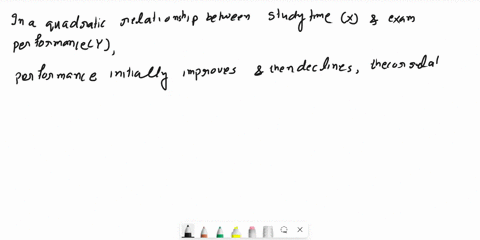 In a quadratic relationship between study time (x) & exam
performance(Y),
performance initially improves & then declines, the correlat